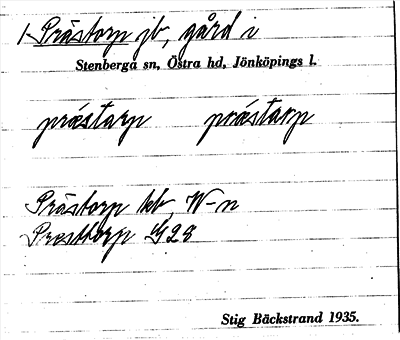 1 Prästorp jb, gård i
Stenberga sn, Östra hd, Jönköpings l.
præstarp præstarp
Prästorp kb, W-n
Presttorp G28
Stig Bäckstrand 1935.